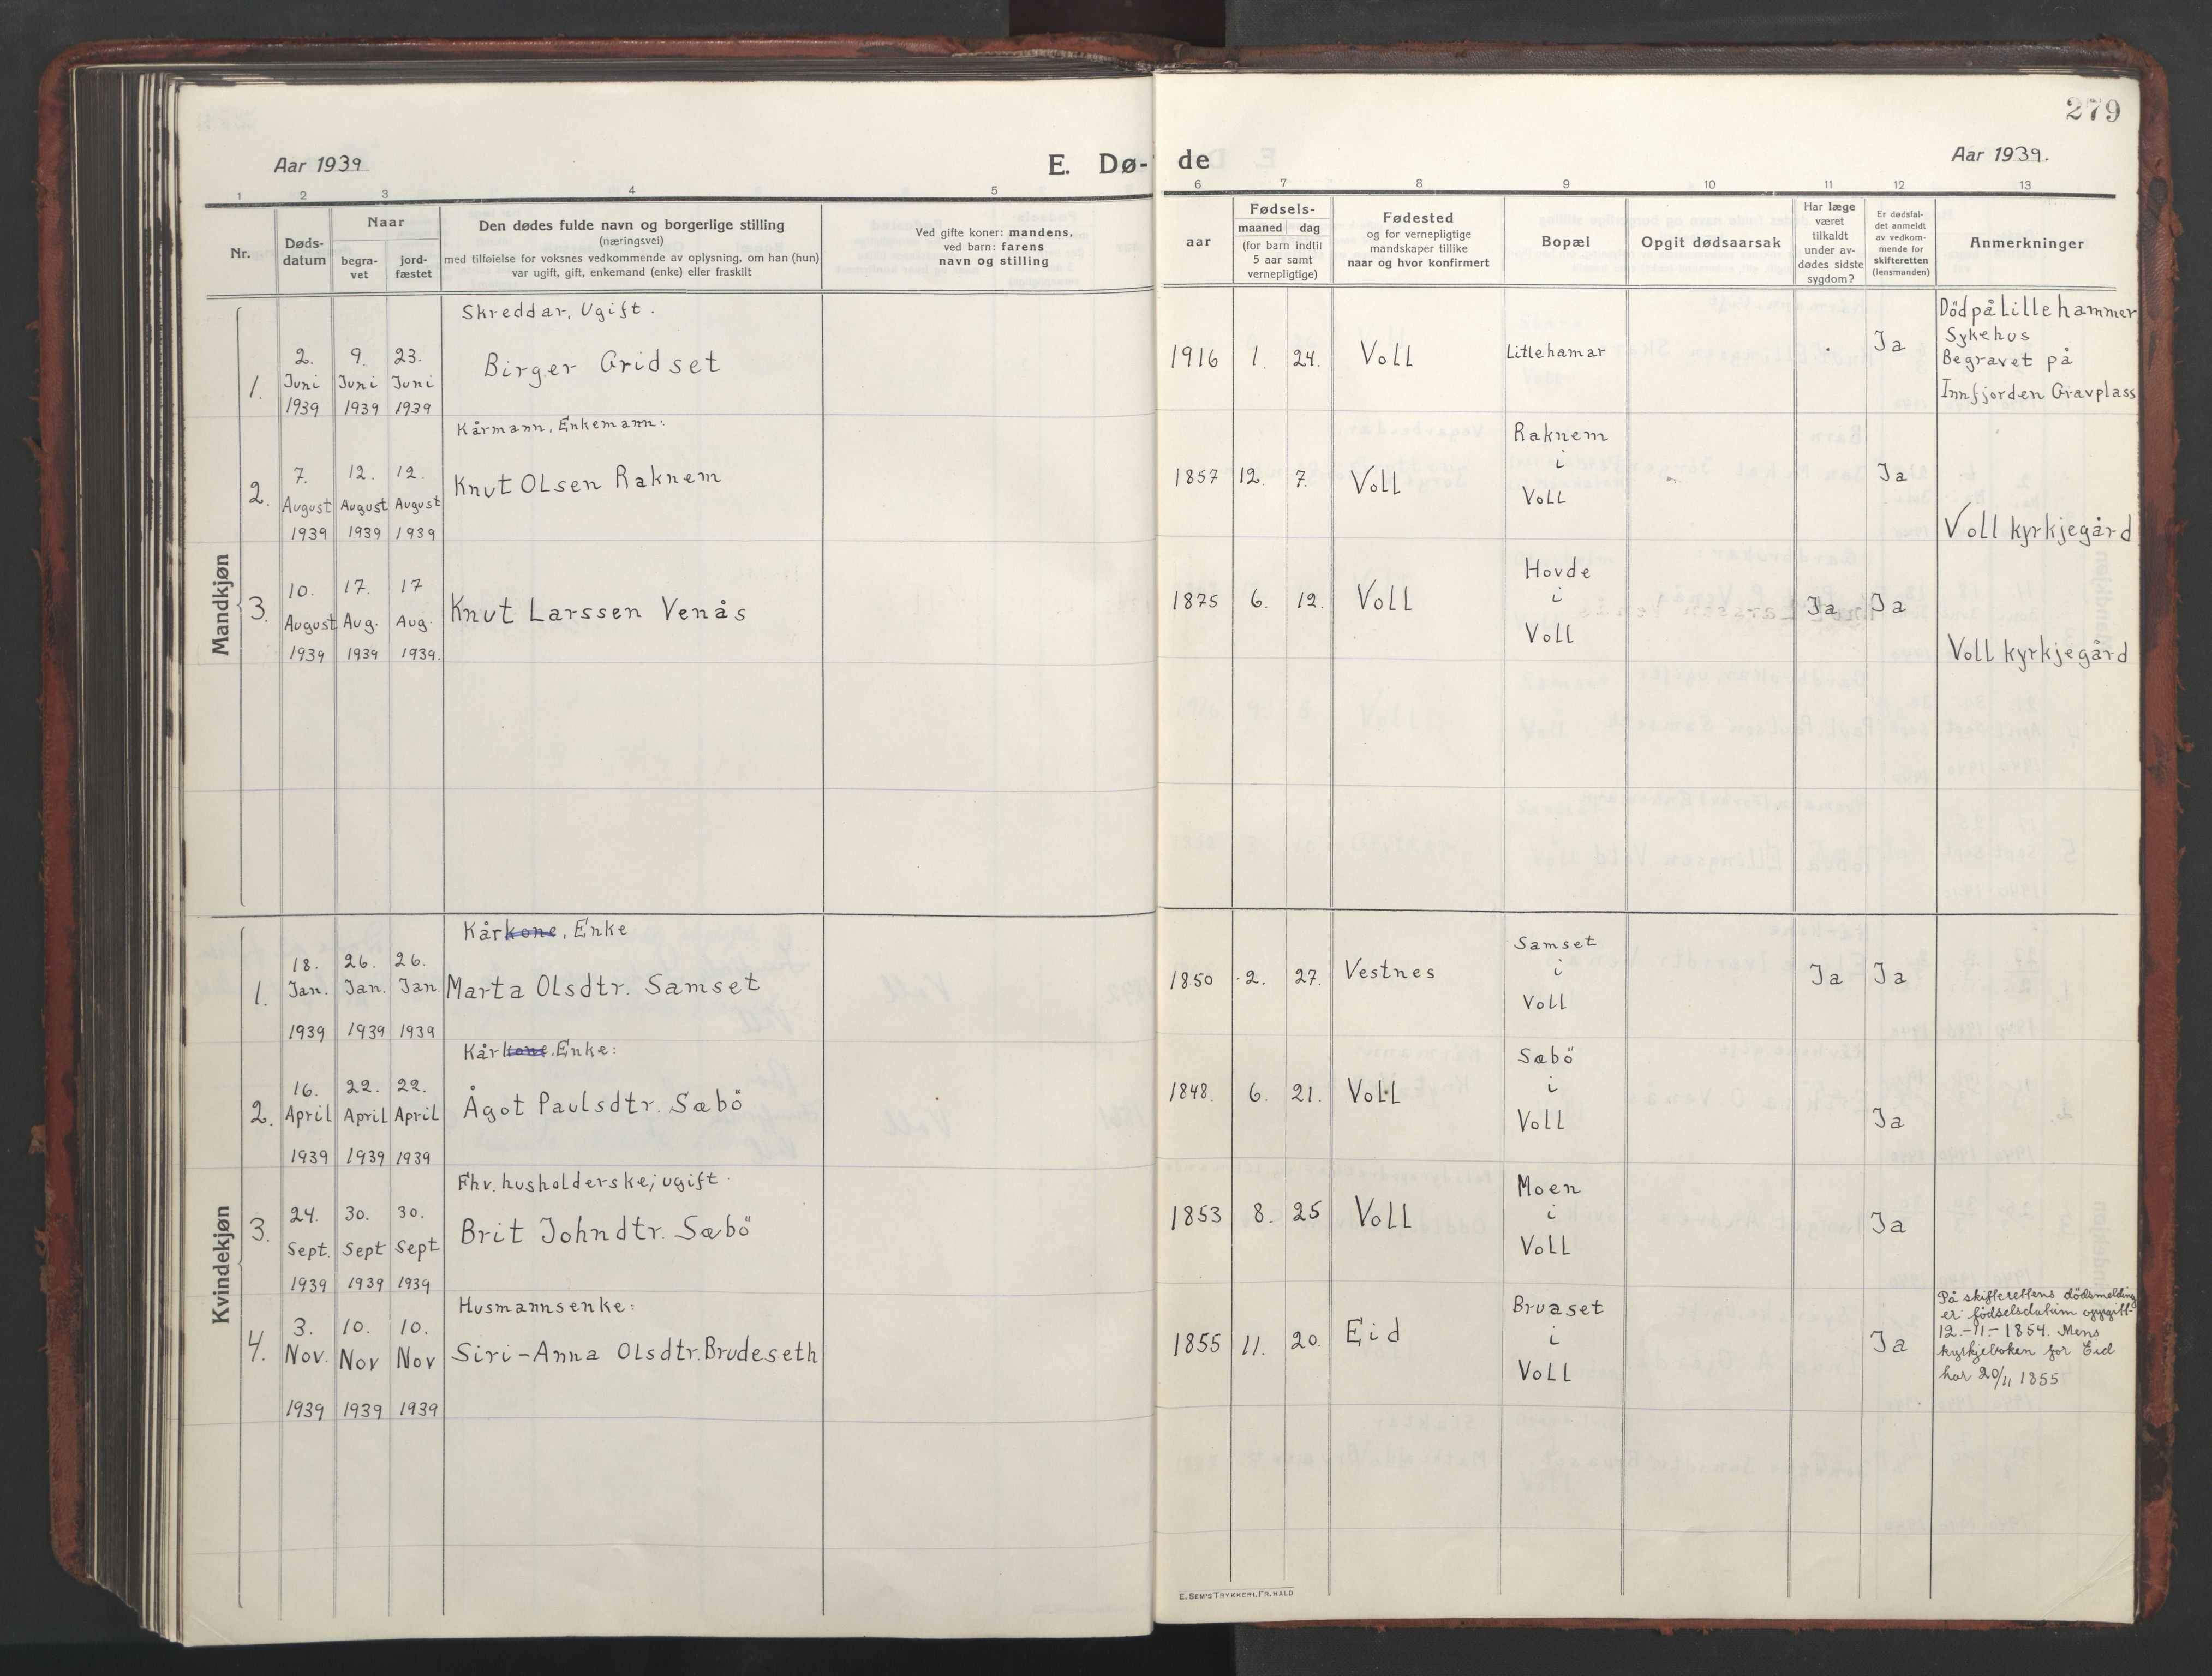 279
Aar 1939
E. Dø-
de
Aar 1939.
1 2 3 4 5 6 7 8 9 10 11 12 13
Nr.
Døds-
datum
Naar
begra-
vet
jord-
fæstet
Den dødes fulde navn og borgerlige stilling
(næringsvei)
med tilføielse for voksnes vedkommende av oplysning, om han (hun)
var ugift, gift, enkemand (enke) eller fraskilt
Ved gifte koner: mandens,
ved barn: farens
navn og stilling
Fødsels-
aar
maaned dag
(for barn indtil
5 aar samt
vernepligtige)
Fødested
og for vernepligtige
mandskaper tillike
naar og hvor konfirmert
Bopæl
Opgit dødsaarsak
Har læge
været
tilkaldt
under av-
dødes sidste
sygdom?
Er dødsfal-
det anmeldt
av vedkom-
mende for
skifteretten
(lensmanden)
Anmerkninger
Mandkjøn
1.
2. Juni 1939
9. Juni 1939
23. Juni 1939
Skreddar, Ugift.
Birger Gridset
1916 1. 24. Voll
Litlehamar
Ja
Död på Lillehammer
Sykehus
Begravet på
Innfjorden Gravplass
2.
7. August 1939
12. August 1939
12. August 1939
Kårmann, Enkemann:
Knut Olsen Raknem
1857 12. 7. Voll
Raknem
i
Voll
Ja
Voll kyrkjegård
3.
10. August 1939
17. Aug. 1939
17 Aug. 1939.
Knut Larssen Venås
1875 6. 12. Voll
Hovde
i
Voll
Ja Ja
Voll kyrkjegård
Kvindekjøn
1.
18. Jan. 1939
26. Jan. 1939
26. Jan. 1939
Kårkone, Enke
Marta Olsdtr. Samset
1850 2. 27. Vestnes
Samset
i
Voll
Ja Ja
2.
16. April 1939
22. April 1939
22. April 1939
Kårkone, Enke:
Ågot Paulsdtr. Sæbö
1848. 6. 21. Voll
Sæbö
i
Voll
Ja
3.
24. Sept. 1939
30. Sept 1939
30. Sept 1939
Fhv. husholderske; ugift
Brit Johndtr. Sæbö
1853 8. 25 Voll
Moen
i
Voll
Ja
4.
3. Nov. 1939
10. Nov 1939
10. Nov 1939
Husmannsenke:
Siri-Anna Olsdtr. Brudeseth
1855 11. 20. Eid
Bruaset
i
Voll
Ja
På skifterettens dödsmelding
er födselsdatum oppgitt
12.-11-1854. Mens
kyrkjeboken for Eid
har 20/11 1855
E. SEM'S TRYKKERI, FR. HALD